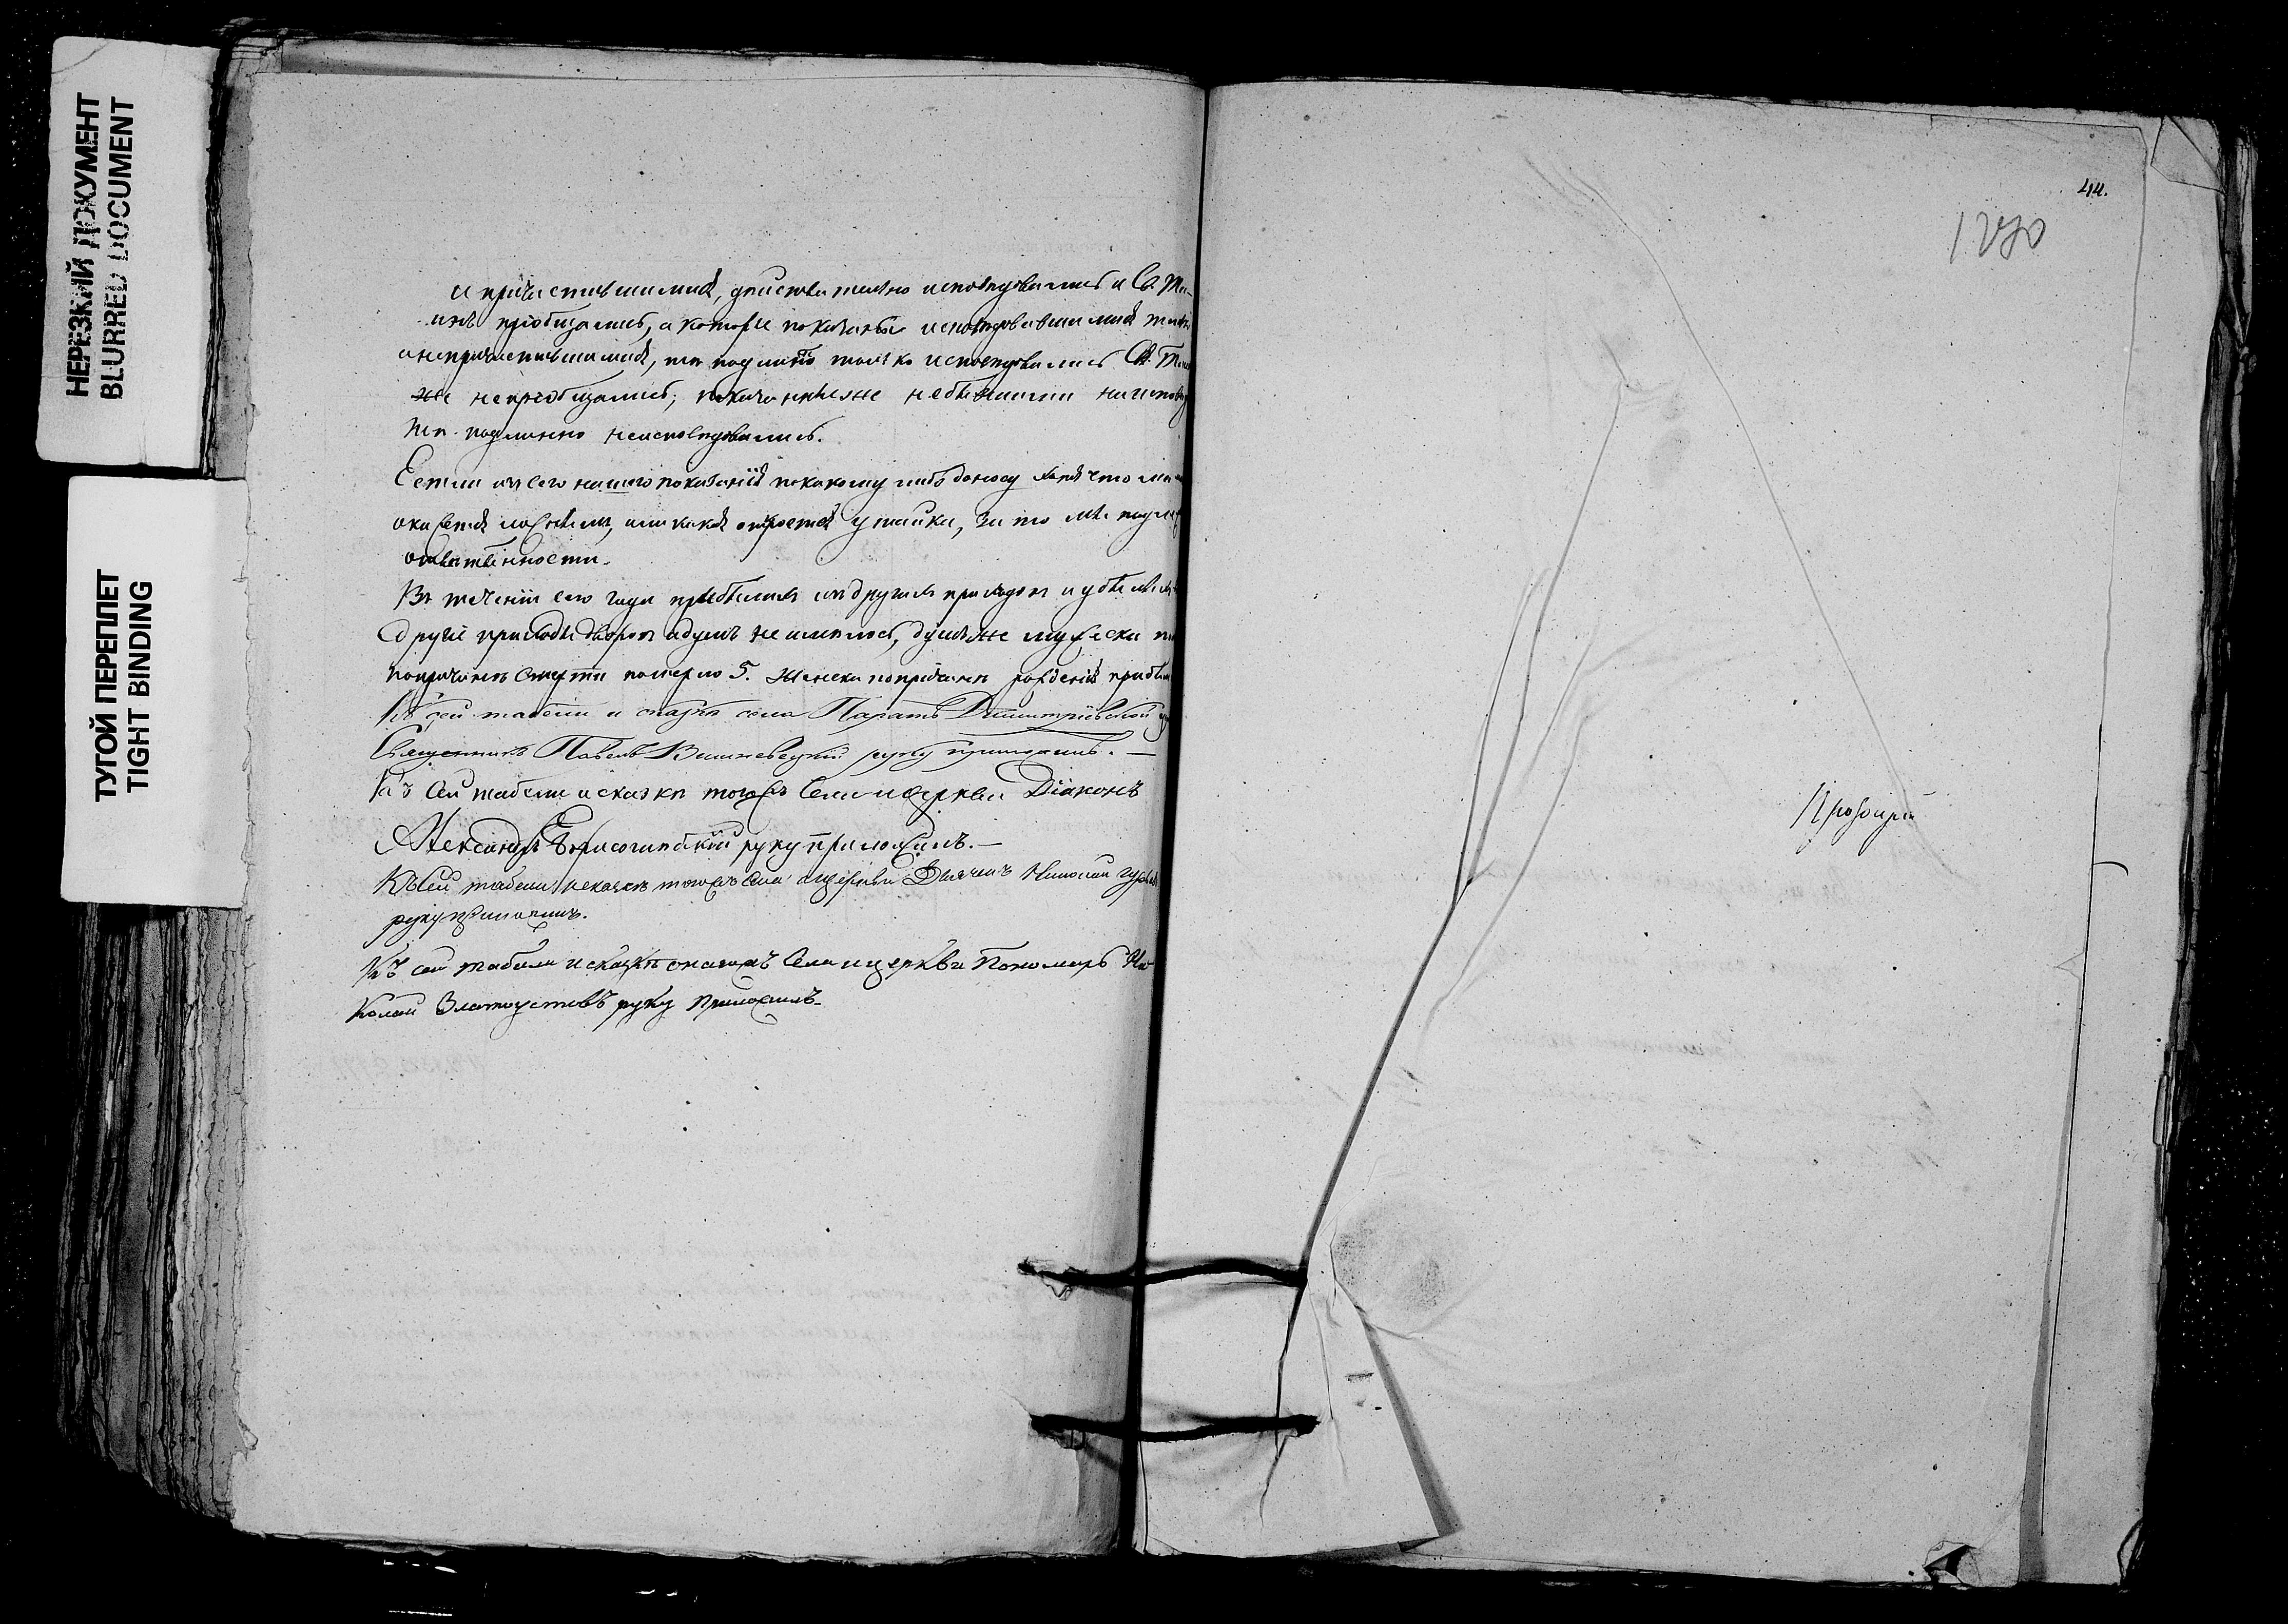 НЕРЕЗКИЙ ДОКУМЕНТ
BLURRED DOCUMENT
ТУГОЙ ПЕРЕПЛЕТ
TIGHT BINDING
и причастившимися, действительно исповѣдывались и Св. Та-
инъ пріобщались, а которые показаны исповѣдовавшимися
и непричастившимися, тѣ подлинно только исповѣдывались Св. Таин
же непріобщались; показанные же небывшими на исповѣд
тѣ подлинно неисповѣдовались.
Естли изъ сего нашего показанія по какому либо доносу хотя что
окажется ложнымъ, или какая откроется утайка, за то мы подле
отвѣтственности.
Въ теченіи сего года прибылыхъ изъ другихъ приходовъ и убылыхъ
другіе приходы дворовъ и душъ не имѣлось, душъ же мужеска
по причинѣ смерти померло 5. женска по причинѣ рожденія прибы
Къ сей табели и сказкѣ села Паратъ Димитріевской
Священникъ Павелъ Вишневецкій руку приложилъ.—
Къ сей табели и сказкѣ тогожъ села и церкви Діаконъ
Александръ Борисоглебскій руку приложилъ.—
Къ сей табели и сказкѣ тогожъ села и церкви Дьячекъ Николай
руку приложилъ.
Къ сей табели и сказкѣ оногожъ села и церкви Пономарь Ни-
колай Златоустовъ руку приложилъ.
44.